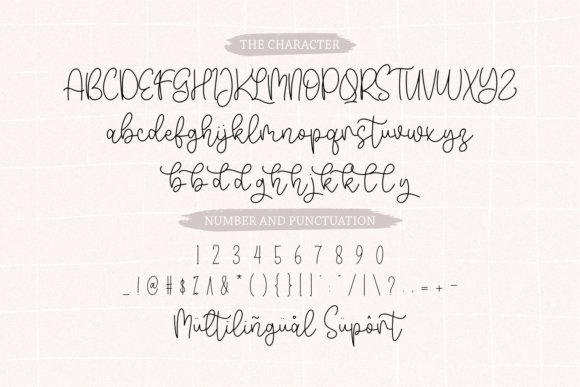 THE CHARACTER
ABCDEFGHIJKLMNOPQRSTUVWXYZ
abcdefghijklmnopqrstuvwxyz
bbddghhjkkllly
NUMBER AND PUNCTUATION
1 2 3 4 5 6 7 8 9 0
Mültiliñgüål Süpôrt